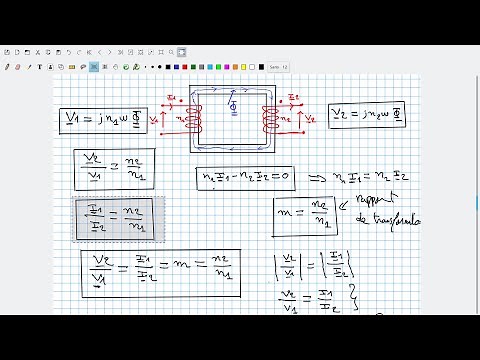 I1 Φ I2
V1 n1 n2 V2
V1 = j n1 ω Φ
V2 = j n2 ω Φ
V2/V1 = n2/n1
n1 I1 - n2 I2 = 0 ⇒ n1 I1 = n2 I2
I1/I2 = n2/n1
m = n2/n1 rapport
de transforma
V2/V1 = I1/I2 = m = n2/n1
|V2/V1| = |I1/I2|
V2/V1 = I1/I2 }